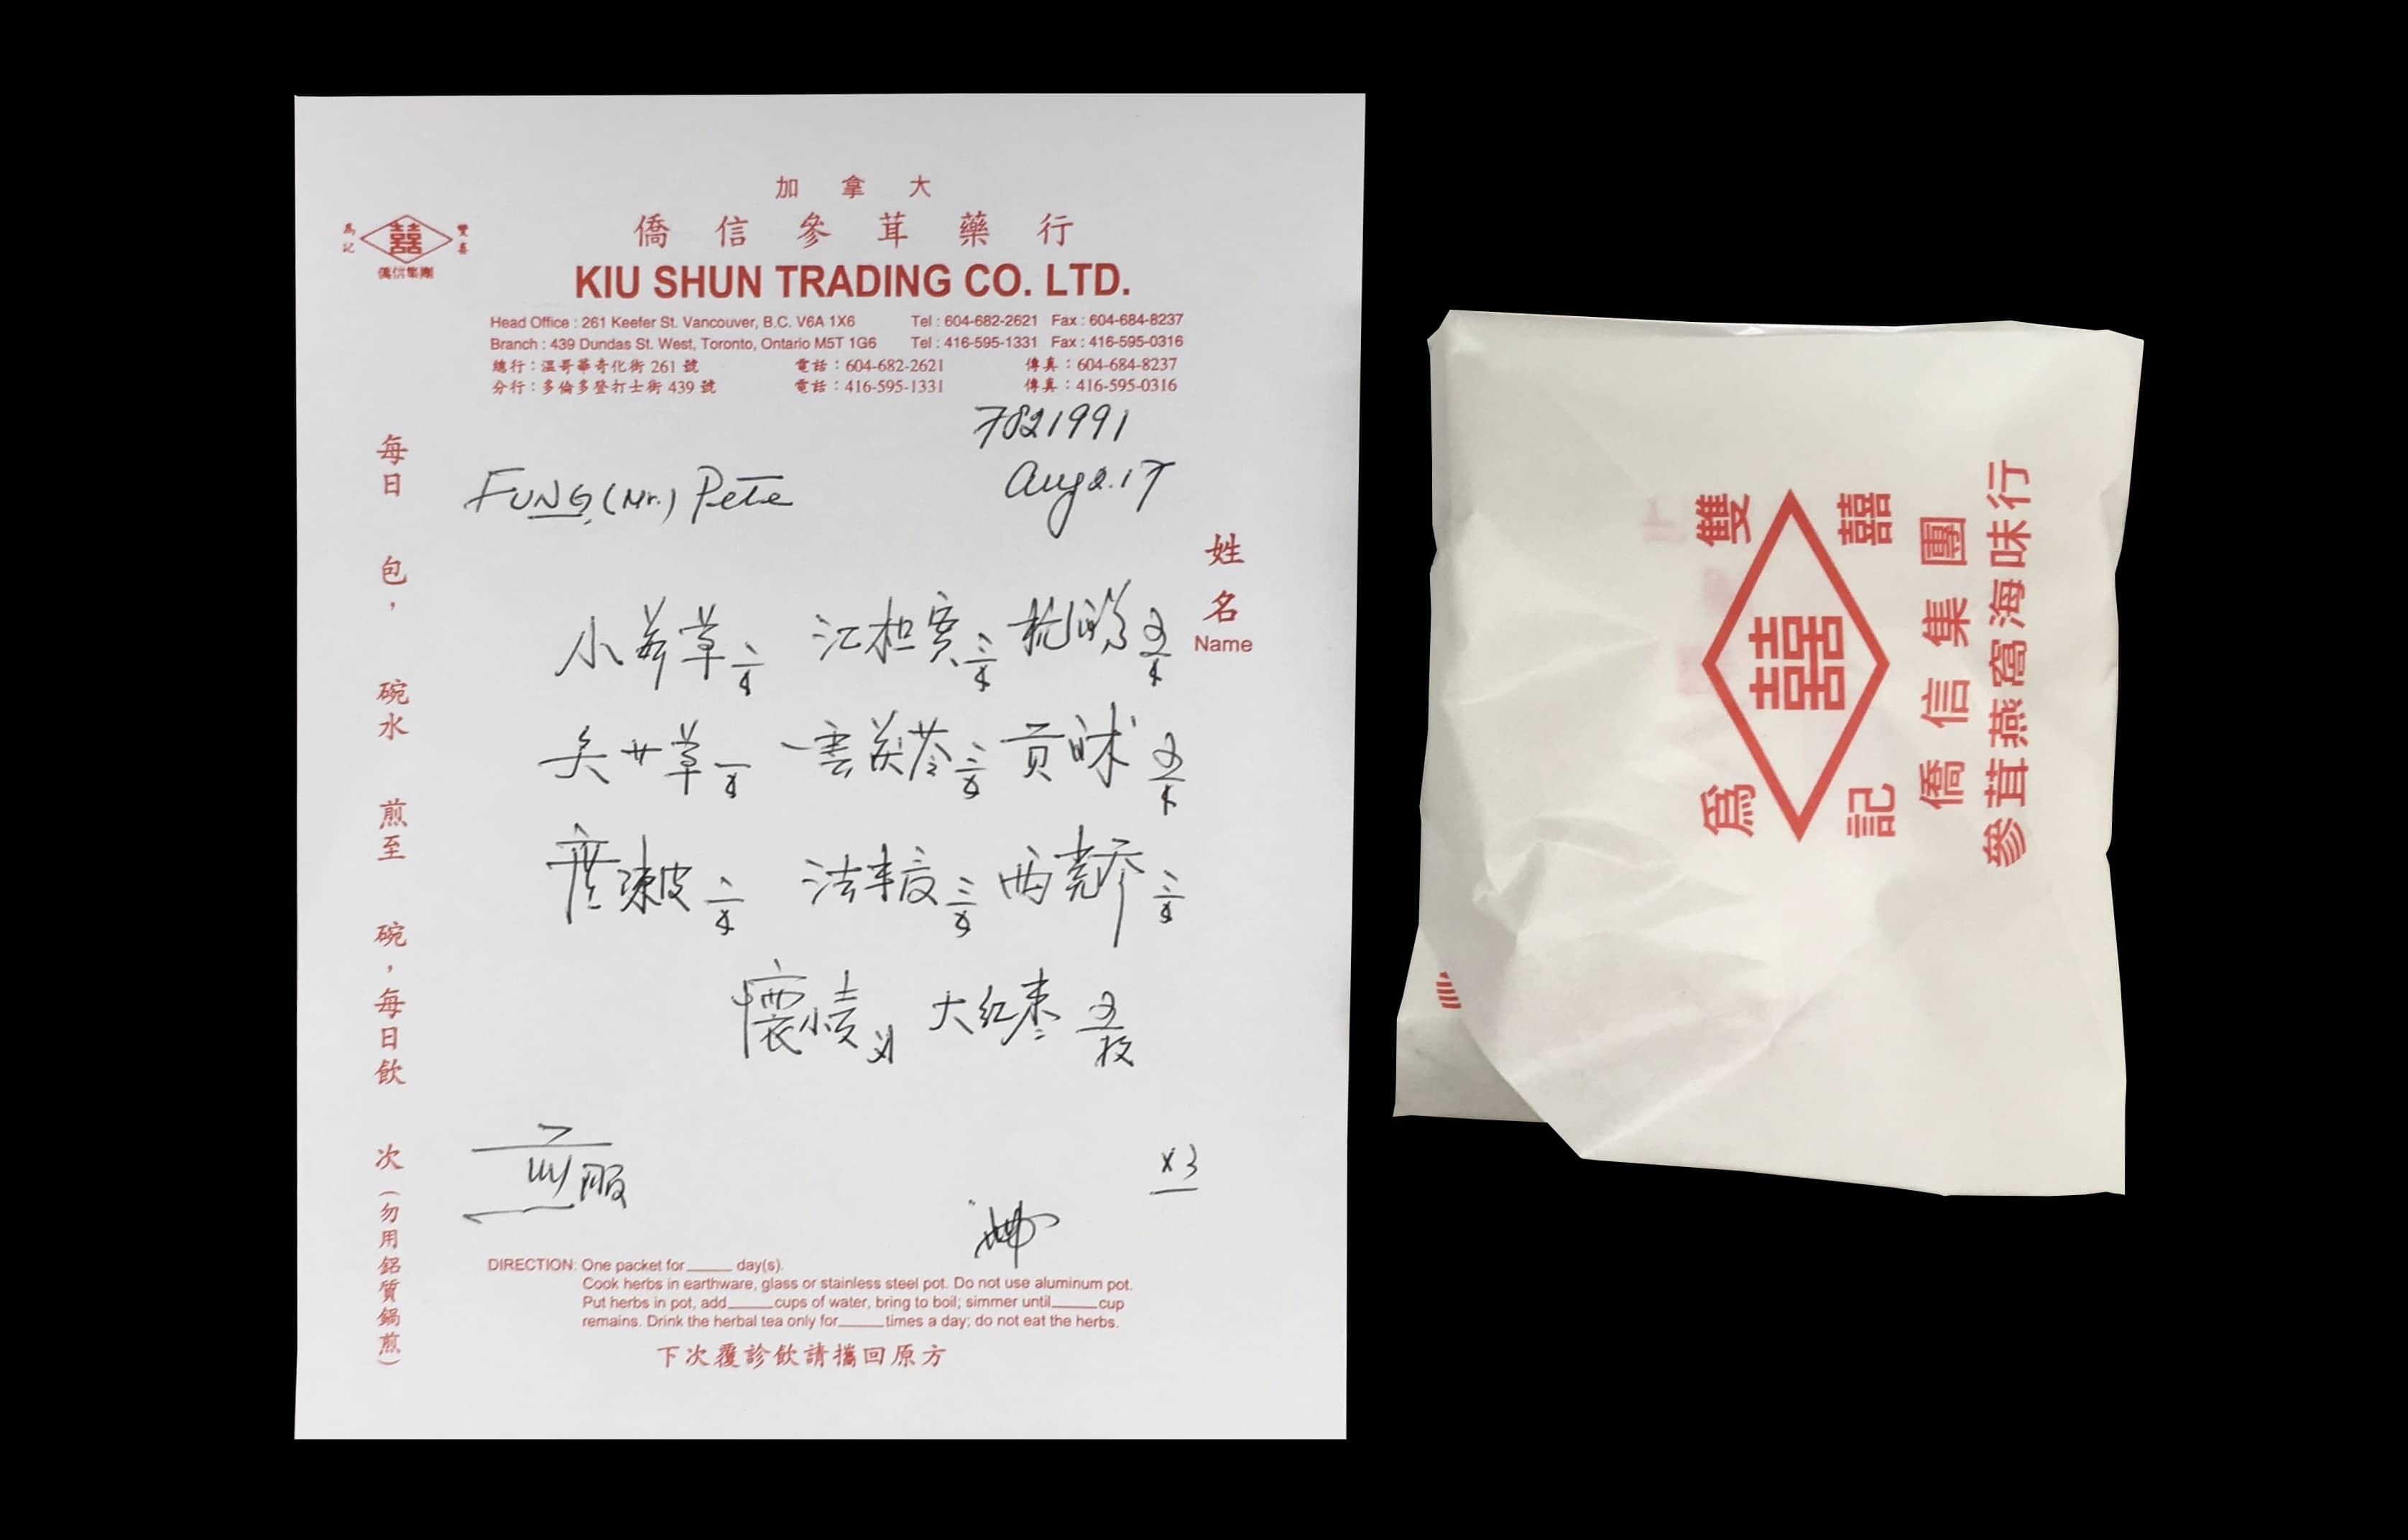 加拿大
僑信參茸藥行
KIU SHUN TRADING CO. LTD.
為記 囍 雙喜
僑信集團
Head Office : 261 Keefer St. Vancouver, B.C. V6A 1X6 Tel : 604-682-2621 Fax : 604-684-8237
Branch : 439 Dundas St. West, Toronto, Ontario M5T 1G6 Tel : 416-595-1331 Fax : 416-595-0316
總行：溫哥華奇化街 261 號 電話：604-682-2621 傳真：604-684-8237
分行：多倫多登打士街 439 號 電話：416-595-1331 傳真：416-595-0316
7821991
FUNG, (Mr.) Pete
Aug 2.17
姓名
Name
小 草
草 雲茯苓
陳皮 法
大红枣
服
x3
每日 包， 碗水 煎至 碗，每日飲 次（勿用鋁質鍋煎）
DIRECTION: One packet for____ day(s).
Cook herbs in earthware, glass or stainless steel pot. Do not use aluminum pot.
Put herbs in pot, add____cups of water, bring to boil; simmer until____cup
remains. Drink the herbal tea only for____times a day; do not eat the herbs.
下次覆診飲請攜回原方
雙囍
囍
為記
僑信集團
參茸燕窩海味行